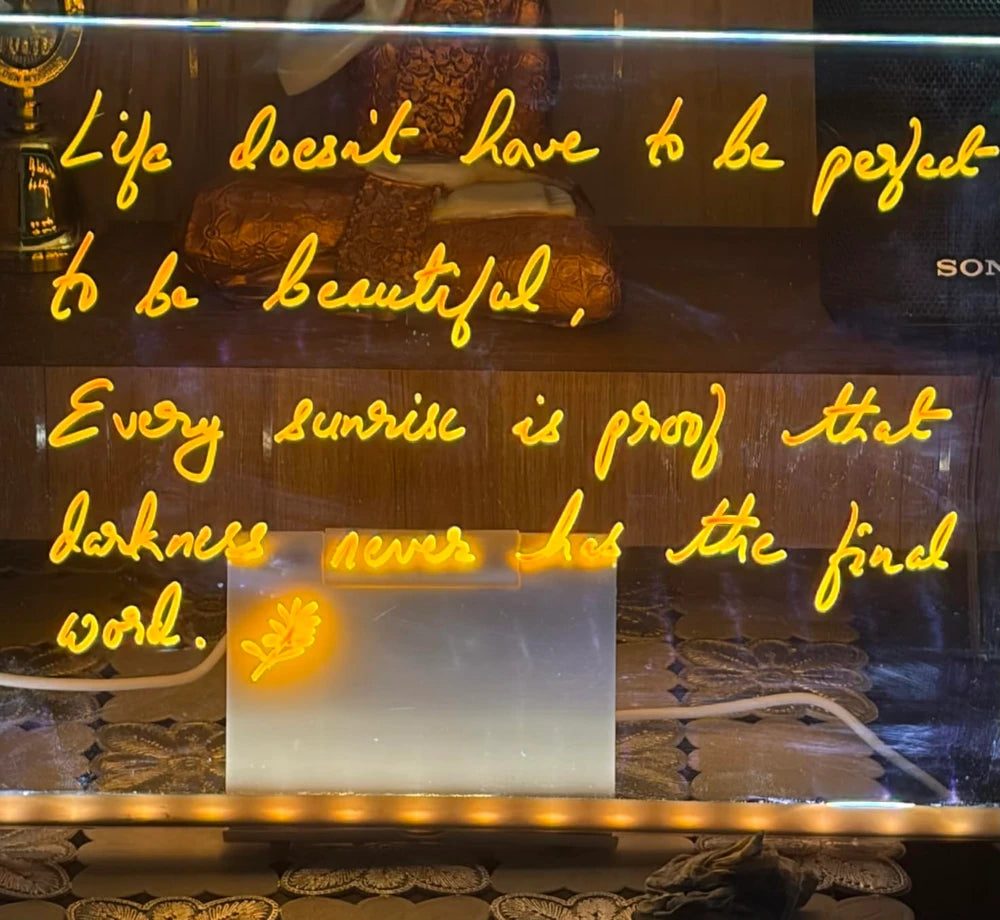 Life doesn't have to be perfect
to be beautiful,
SON
Every sunrise is proof that
darkness never has the final
word.